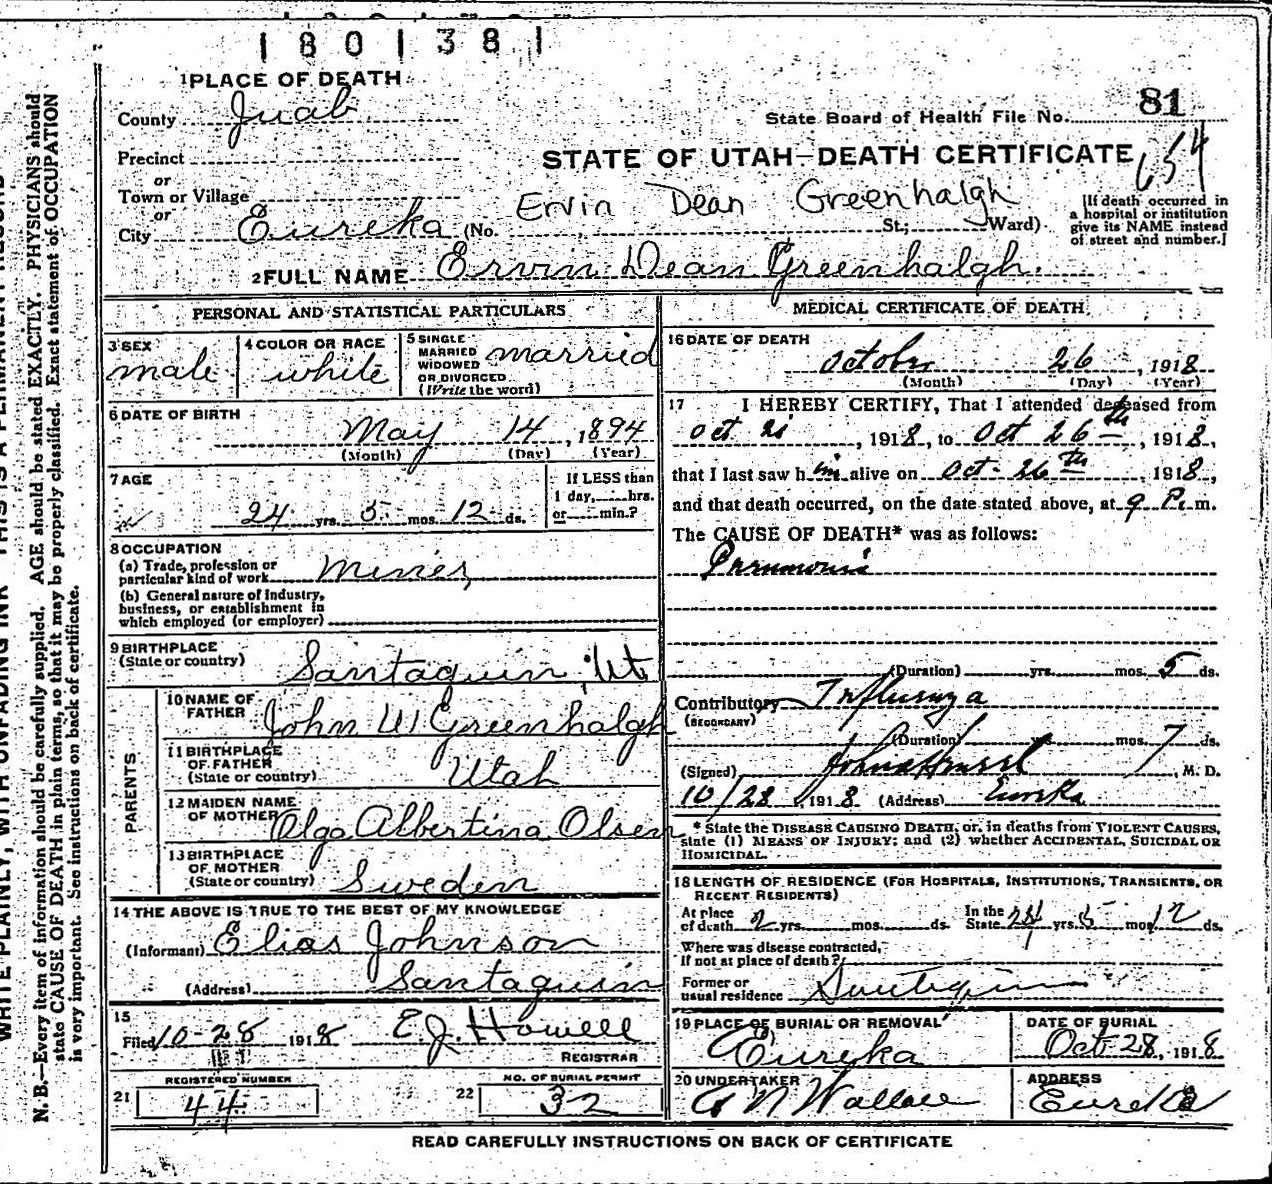 1801381
1 PLACE OF DEATH
County Juab
State Board of Health File No. 81
Precinct
STATE OF UTAH—DEATH CERTIFICATE
654
or
Town or Village
Ervin Dean Greenhalgh
or
City Eureka (No. St.; Ward)
[If death occurred in
a hospital or institution
give its NAME instead
of street and number.]
2 FULL NAME Ervin Dean Greenhalgh.
PERSONAL AND STATISTICAL PARTICULARS
3 SEX
male
4 COLOR OR RACE
white
5 SINGLE
MARRIED
WIDOWED
OR DIVORCED
(Write the word)
married
6 DATE OF BIRTH
May 14, 1894
(Month) (Day) (Year)
7 AGE
24 yrs. 5 mos. 12 ds.
If LESS than
1 day, hrs.
or min.?
8 OCCUPATION
(a) Trade, profession or
particular kind of work Miner
(b) General nature of Industry,
business, or establishment in
which employed (or employer)
9 BIRTHPLACE
(State or country) Santaquin, Ut
PARENTS
10 NAME OF
FATHER John W Greenhalgh
11 BIRTHPLACE
OF FATHER
(State or country) Utah
12 MAIDEN NAME
OF MOTHER Olga Albertina Olsen
13 BIRTHPLACE
OF MOTHER
(State or country) Sweden
14 THE ABOVE IS TRUE TO THE BEST OF MY KNOWLEDGE
(Informant) Elias Johnson
(Address) Santaquin
15
Filed 10-28 1918 E.J. Howell
REGISTRAR
21 REGISTERED NUMBER
44
22 NO. OF BURIAL PERMIT
32
MEDICAL CERTIFICATE OF DEATH
16 DATE OF DEATH
October 26, 1918
(Month) (Day) (Year)
17 I HEREBY CERTIFY, That I attended deceased from
Oct 21, 1918, to Oct 26th, 1918,
that I last saw him alive on Oct- 26th 1918,
and that death occurred, on the date stated above, at 9 P.m.
The CAUSE OF DEATH* was as follows:
Pneumonia
(Duration) yrs. mos. 5 ds.
Contributory Influenza
(SECONDARY)
(Duration) yrs. mos. 7 ds.
(Signed) , M. D.
10/28 1918 (Address) Eureka
* State the DISEASE CAUSING DEATH, or, in deaths from VIOLENT CAUSES,
state (1) MEANS OF INJURY; and (2) whether ACCIDENTAL, SUICIDAL OR
HOMICIDAL.
18 LENGTH OF RESIDENCE (FOR HOSPITALS, INSTITUTIONS, TRANSIENTS, OR
RECENT RESIDENTS)
At place
of death 2 yrs. mos. ds.
In the
State 24 yrs. 5 mos. 12 ds.
Where was disease contracted,
If not at place of death?
Former or
usual residence Santaquin
19 PLACE OF BURIAL OR REMOVAL
Eureka
DATE OF BURIAL
Oct 28, 1918
20 UNDERTAKER
Wallace
ADDRESS
Eureka
READ CAREFULLY INSTRUCTIONS ON BACK OF CERTIFICATE
N. B.—Every item of information should be carefully supplied. AGE should be stated EXACTLY. PHYSICIANS should
state CAUSE OF DEATH in plain terms, so that it may be properly classified. Exact statement of OCCUPATION
is very important. See instructions on back of certificate.